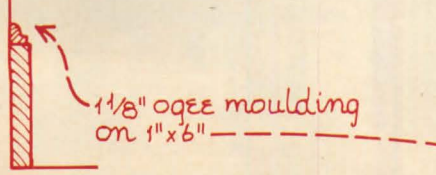 1 1/8" ogee moulding
on 1"x6"